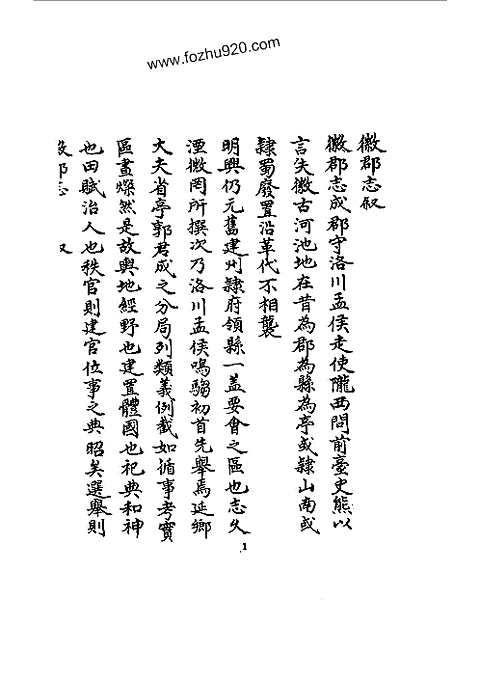 www.fozhu920.com
徽郡志叙
徽郡志成郡守洛川孟侯走使隴西問前臺史熊以
言失徽古河池地在昔為郡為縣為亭或隸山南或
隸蜀廢置沿革代不相襲
明興仍元舊建州隸府領縣一盖要會之區也志久
湮微罔所撰次乃洛川孟侯鳴騶初首先舉焉延鄉
大夫省亭郭君成之分局列類義例截如循事考實
區畫燦然是故輿地經野也建置體國也祀典和神
也田賦治人也秩官則建官位事之典昭矣選舉則
郡志 叙
1